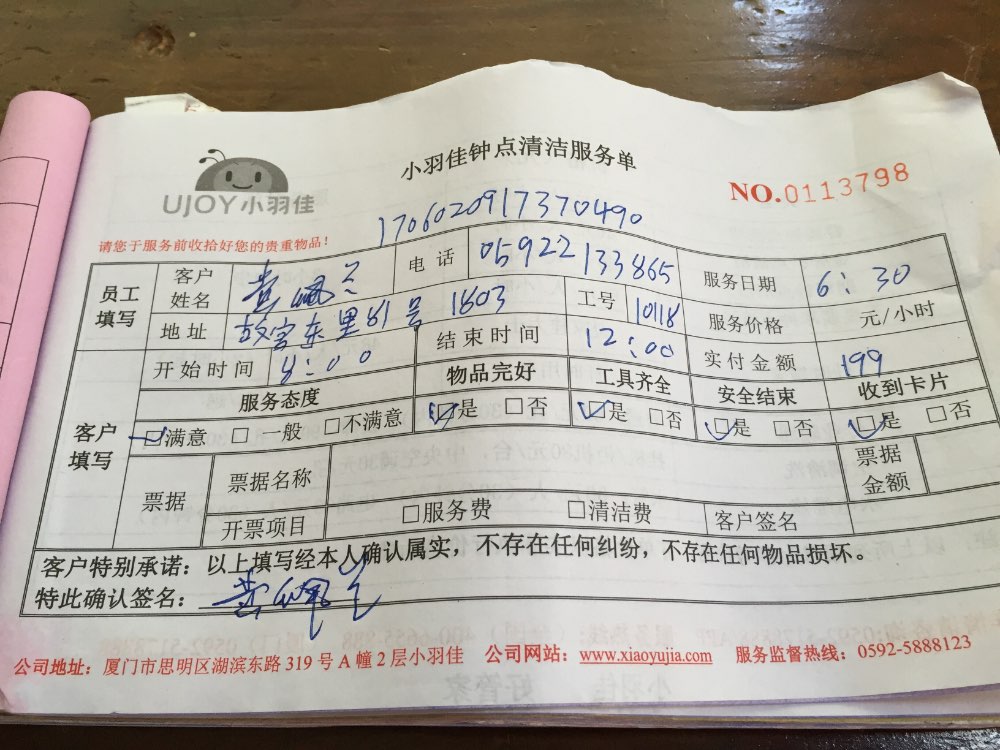 小羽佳钟点清洁服务单
UJOY小羽佳
NO.0113798
1706020917370490
请您于服务前收拾好您的贵重物品！
员工填写 客户姓名 黄佩兰 电话 05922133865 服务日期 6：30
地址 东里81号 1803 工号 10118 服务价格 元/小时
开始时间 8：00 结束时间 12：00 实付金额 199
客户填写 服务态度 物品完好 工具齐全 安全结束 收到卡片
☑满意 □一般 □不满意 ☑是 □否 ☑是 □否 ☑是 □否 ☑是 □否
票据 票据名称 票据金额
开票项目 □服务费 □清洁费 客户签名
客户特别承诺：以上填写经本人确认属实，不存在任何纠纷，不存在任何物品损坏。
特此确认签名：黄佩兰
公司地址：厦门市思明区湖滨东路319号A幢2层小羽佳 公司网站：www.xiaoyujia.com 服务监督热线：0592-5888123